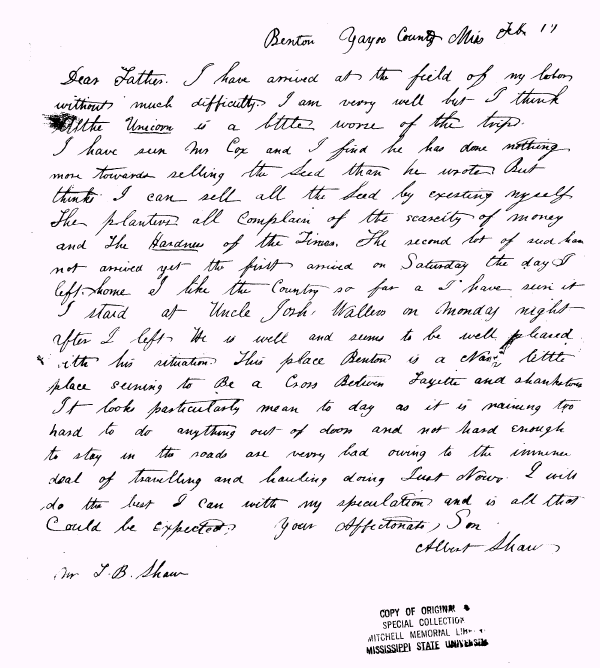 Benton Yazoo County Miss Feb 17
Dear Father. I have arrived at the field of my labors
without much difficulty. I am verry well but I think
the Unicorn is a little worse of the trip.
I have seen Mr Cox and I find he has done nothing
more towards selling the Seed than he wrote But
thinks I can sell all the Seed by exerting myself
The planters all Complain of the scarcity of money
and The Hardness of the Times. The second lot of seed has
not arrived yet the first arrived on Saturday the day I
left home I like the Country so far a I have seen it
I staid at Uncle Josh. Wallers on Monday night
after I left He is well and seems to be well pleased
with his situation This place Benton is a little
place seeming to Be a Cross Between Fayette and
It looks particularly mean to day as it is raining too
hard to do anything out of doors and not hard enough
to stay in the roads are verry bad owing to the immense
deal of travelling and hauling doing Just Now. I will
do the best I can with my speculation and is all that
Could be Expected. Your Affectionate, Son
Albert Shaw
Mr T. B. Shaw
COPY OF ORIGINAL
SPECIAL COLLECTION
MITCHELL MEMORIAL LIBRARY
MISSISSIPPI STATE UNIVERSITY